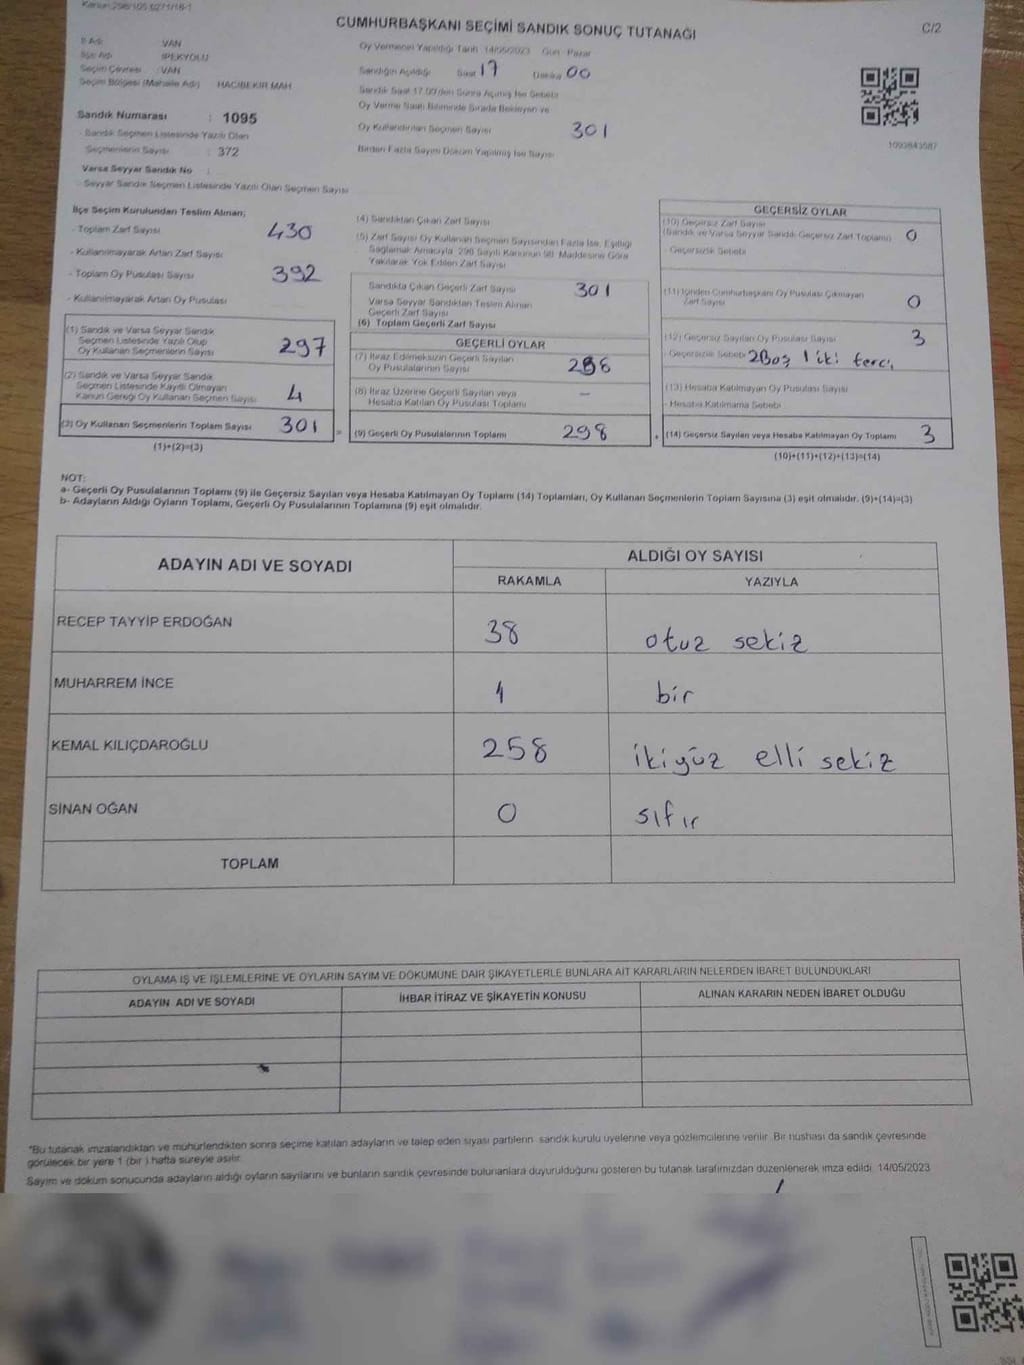 CUMHURBAŞKANI SEÇİMİ SANDIK SONUÇ TUTANAĞI
C/2
İl Adı VAN
İlçe Adı İPEKYOLU
Seçim Çevresi VAN
Seçim Bölgesi (Mahalle Adı) HACIBEKİR MAH
Sandık Numarası : 1095
Sandık Seçmen Listesinde Yazılı Olan
Seçmenlerin Sayısı : 372
Varsa Seyyar Sandık No :
Seyyar Sandık Seçmen Listesinde Yazılı Olan Seçmen Sayısı
Oy Vermenin Yapıldığı Tarih 14/05/2023 Gün Pazar
Sandığın Açıldığı Saat 17 Dakika 00
Sandık Saat 17.00'den Sonra Açılmış İse Sebebi
Oy Verme Saati Bitiminde Sırada Bekleyen ve
Oy Kullandırılan Seçmen Sayısı 301
Birden Fazla Sayım Döküm Yapılmış İse Sayısı
1093843587
İlçe Seçim Kurulundan Teslim Alınan;
- Toplam Zarf Sayısı 430
- Kullanılmayarak Artan Zarf Sayısı
- Toplam Oy Pusulası Sayısı 392
- Kullanılmayarak Artan Oy Pusulası
(1) Sandık ve Varsa Seyyar Sandık
Seçmen Listesinde Yazılı Olup
Oy Kullanan Seçmenlerin Sayısı 297
(2) Sandık ve Varsa Seyyar Sandık
Seçmen Listesinde Kayıtlı Olmayan
Kanun Gereği Oy Kullanan Seçmen Sayısı 4
(3) Oy Kullanan Seçmenlerin Toplam Sayısı 301
(1)+(2)=(3)
=
(4) Sandıktan Çıkan Zarf Sayısı
(5) Zarf Sayısı Oy Kullanan Seçmen Sayısından Fazla İse, Eşitliği
Sağlamak Amacıyla, 298 Sayılı Kanunun 98. Maddesine Göre
Yakılarak Yok Edilen Zarf Sayısı
Sandıkta Çıkan Geçerli Zarf Sayısı 301
Varsa Seyyar Sandıktan Teslim Alınan
Geçerli Zarf Sayısı
(6) Toplam Geçerli Zarf Sayısı
GEÇERLİ OYLAR
(7) İtiraz Edilmeksizin Geçerli Sayılan
Oy Pusulalarının Sayısı
(8) İtiraz Üzerine Geçerli Sayılan veya
Hesaba Katılan Oy Pusulası Toplamı –
(9) Geçerli Oy Pusulalarının Toplamı 298
+
GEÇERSİZ OYLAR
(10) Geçersiz Zarf Sayısı
(Sandık ve Varsa Seyyar Sandık Geçersiz Zarf Toplamı) 0
- Geçersizlik Sebebi
(11) İçinden Cumhurbaşkanı Oy Pusulası Çıkmayan
Zarf Sayısı 0
(12) Geçersiz Sayılan Oy Pusulası Sayısı 3
- Geçersizlik Sebebi 2Boş 1 iki terci
(13) Hesaba Katılmayan Oy Pusulası Sayısı
- Hesaba Katılmama Sebebi
(14) Geçersiz Sayılan veya Hesaba Katılmayan Oy Toplamı 3
(10)+(11)+(12)+(13)=(14)
NOT:
a- Geçerli Oy Pusulalarının Toplamı (9) ile Geçersiz Sayılan veya Hesaba Katılmayan Oy Toplamı (14) Toplamları, Oy Kullanan Seçmenlerin Toplam Sayısına (3) eşit olmalıdır. (9)+(14)=(3)
b- Adayların Aldığı Oyların Toplamı, Geçerli Oy Pusulalarının Toplamına (9) eşit olmalıdır.
ADAYIN ADI VE SOYADI ALDIĞI OY SAYISI
RAKAMLA YAZIYLA
RECEP TAYYİP ERDOĞAN 38 otuz sekiz
MUHARREM İNCE 1 bir
KEMAL KILIÇDAROĞLU 258 ikiyüz elli sekiz
SİNAN OĞAN 0 sıfır
TOPLAM
OYLAMA İŞ VE İŞLEMLERİNE VE OYLARIN SAYIM VE DÖKÜMÜNE DAİR ŞİKAYETLERLE BUNLARA AİT KARARLARIN NELERDEN İBARET BULUNDUKLARI
ADAYIN ADI VE SOYADI İHBAR İTİRAZ VE ŞİKAYETİN KONUSU ALINAN KARARIN NEDEN İBARET OLDUĞU
*Bu tutanak imzalandıktan ve mühürlendikten sonra seçime katılan adayların ve talep eden siyasi partilerin sandık kurulu üyelerine veya gözlemcilerine verilir. Bir nüshası da sandık çevresinde
görülecek bir yere 1 (bir ) hafta süreyle asılır.
Sayım ve döküm sonucunda adayların aldığı oyların sayılarını ve bunların sandık çevresinde bulunanlara duyurulduğunu gösteren bu tutanak tarafımızdan düzenlenerek imza edildi. 14/05/2023